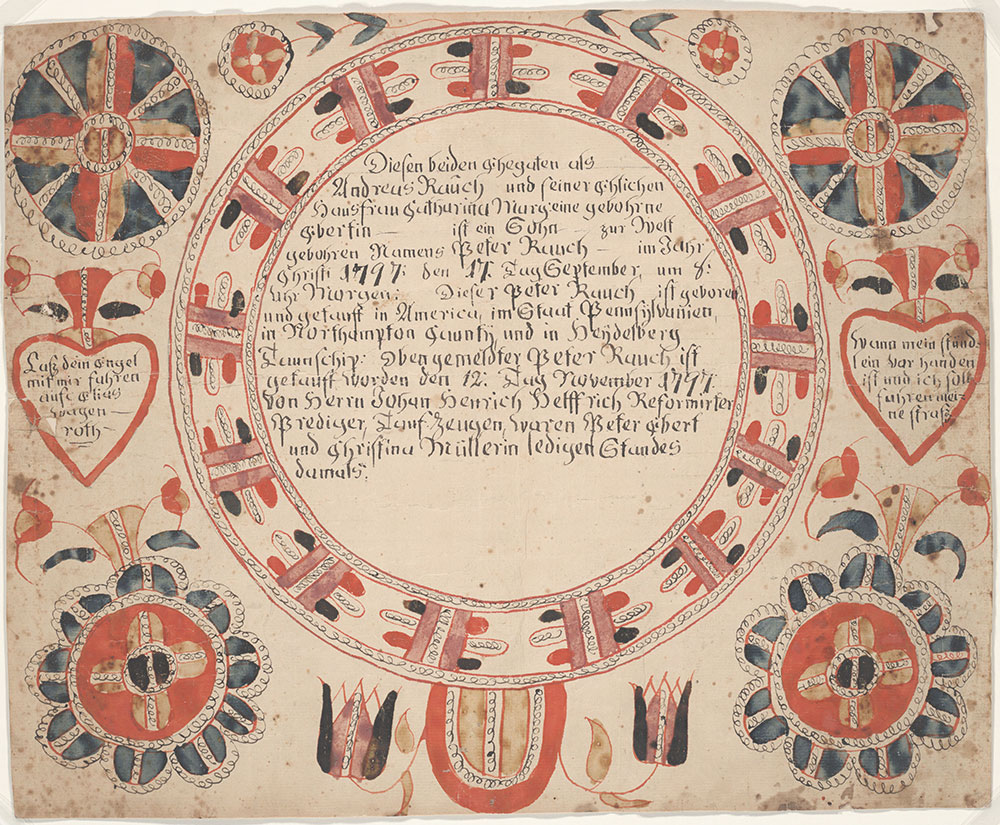 Diesen beiden Ehegaten als
Andreas Rauch und seiner Ehlichen
Hausfrau Catharina Marg: eine gebohrne
Ebertin — ist ein Sohn — zur Welt
gebohren Namens Peter Rauch — im Jahr
Christi 1797: den 17. Tag September, um 8:
uhr Morgen: Dieser Peter Rauch ist geboren
und getauft in America, im Staat Pennsylvanien,
in Northampton Caunty und in Heydelberg
Taunschip: Obengemeldter Peter Rauch ist
getauft worden den 12: Tag November 1797.
Von Herrn Johan Henrich Helffrich Reformirter
Prediger, Tauf-Zeugen, waren Peter Ebert
und Christina Müllerin ledigen Standes
damals:
Laß dein Engel
mit mir fahren
auf Elias
Wagen
roth
Wann mein stünd-
lein Vor handen
ist und ich soll
fahren mei-
ne straß